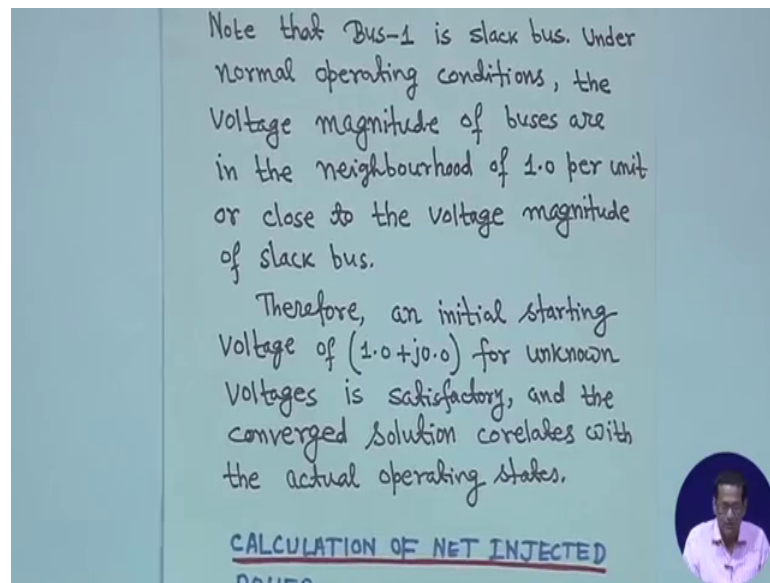 Note that Bus-1 is slack bus. Under
normal operating conditions, the
voltage magnitude of buses are
in the neighbourhood of 1.0 per unit
or close to the voltage magnitude
of slack bus.
Therefore, an initial starting
voltage of (1.0+j0.0) for unknown
voltages is satisfactory, and the
converged solution corelates with
the actual operating states.
CALCULATION OF NET INJECTED